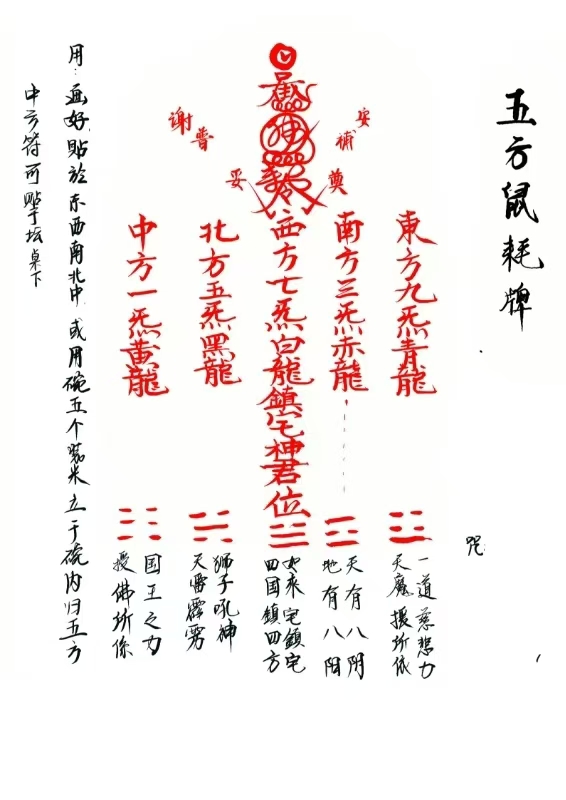 五方鼠耗牌
安補奠
普謝
妥
東方九炁青龍
南方三炁赤龍
西方七炁白龍鎮宅神君位
北方五炁黑龍
中方一炁黃龍
咒
一道慈悲力
天魔援所依
天有八阴
地有八阳
如来宅鎮宅
四国鎮四方
狮子吼神
天雷霹雳
国王之力
援佛所係
用：画好貼於东西南北中 或用碗五个装米立于碗内归五方
中方符可贴于坛桌下